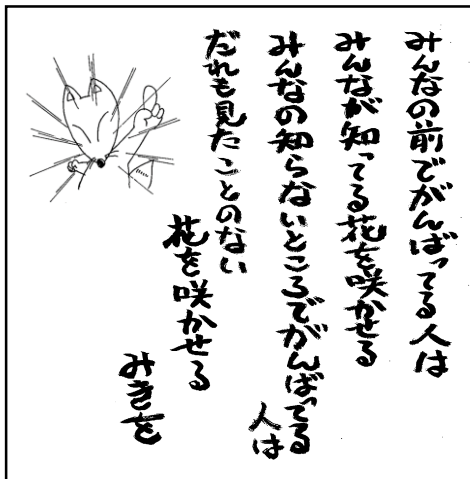 みんなの前でがんばってる人は
みんなが知ってる花を咲かせる
みんなの知らないところでがんばってる
人は
だれも見たことのない
花を咲かせる
みきを